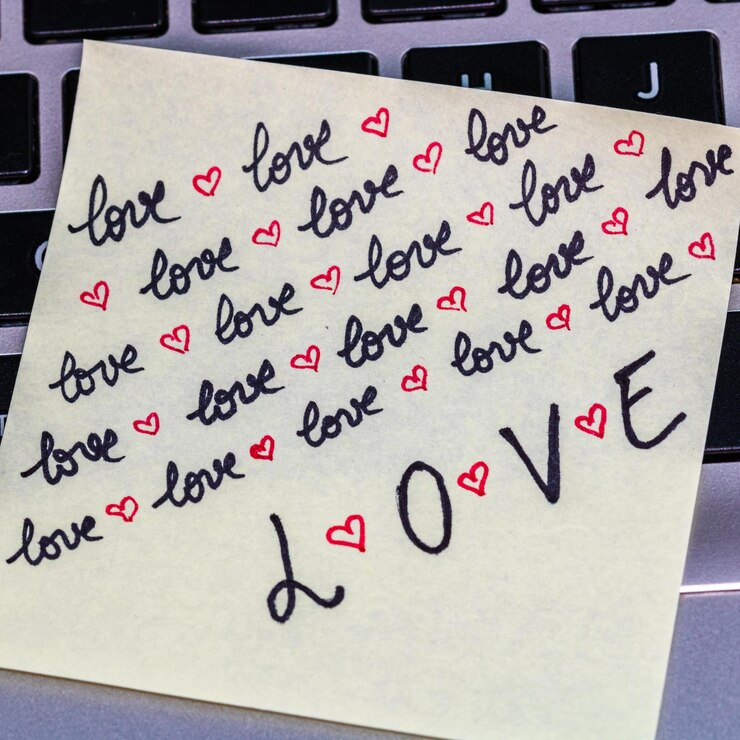 H J
love ♡ love ♡
♡ love ♡ love ♡ love
love ♡ love ♡ love ♡ love ♡
love ♡ love ♡ love ♡ love ♡ love
love ♡ love ♡ love ♡ love ♡ love ♡
L ♡ O ♡ V ♡ E